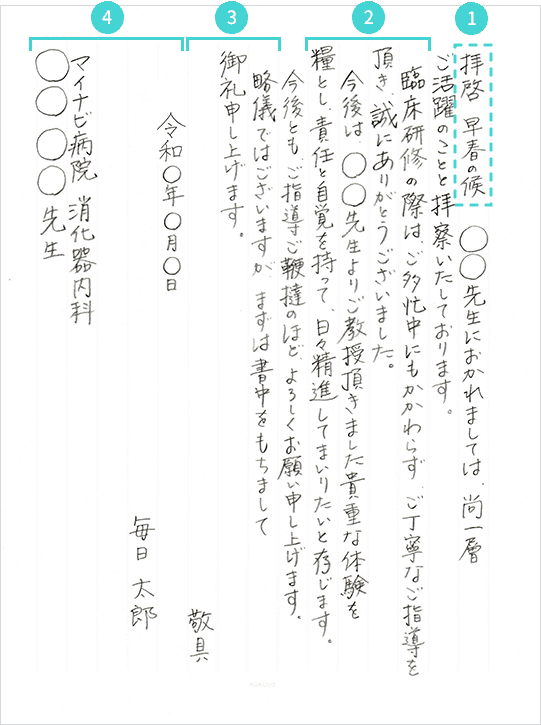 1
2
3
4
拝啓 早春の候 ○○先生におかれましては、尚一層
ご活躍のことと拝察いたしております。
臨床研修の際は、ご多忙中にもかかわらず、ご丁寧なご指導を
頂き、誠にありがとうございました。
今後は、○○先生よりご教授頂きました貴重な体験を
糧とし、責任と自覚を持って、日々精進してまいりたいと存じます。
今後ともご指導ご鞭撻のほど、よろしくお願い申し上げます。
略儀ではございますが、まずは書中をもちまして
御礼申し上げます。
敬具
令和○年○月○日
毎日 太郎
マイナビ病院 消化器内科
○○ ○○ 先生